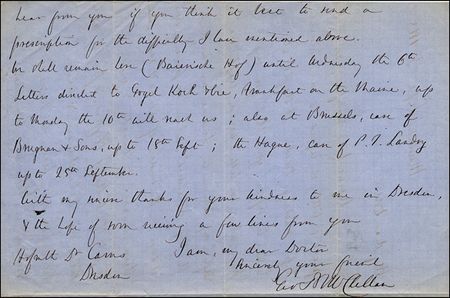 hear from you if you think it best to send a
prescription for the difficulty I have mentioned above.
We shall remain here (Baierische Hof) until Wednesday the 6th
Letters directed to Gogel Koch & Co, Frankfort on the Maine, up
to Monday the 10th will reach us; also at Brussels, care of
& Sons, up to 18th Sept; the Hague, care of P. J. Landry
up to 25th September.
With my sincere thanks for your kindness to me in Dresden,
& the hope of soon receiving a few lines from you
I am, my dear Doctor
Hofrath Dr Carus
Sincerely your friend
Dresden
Geo B McClellan